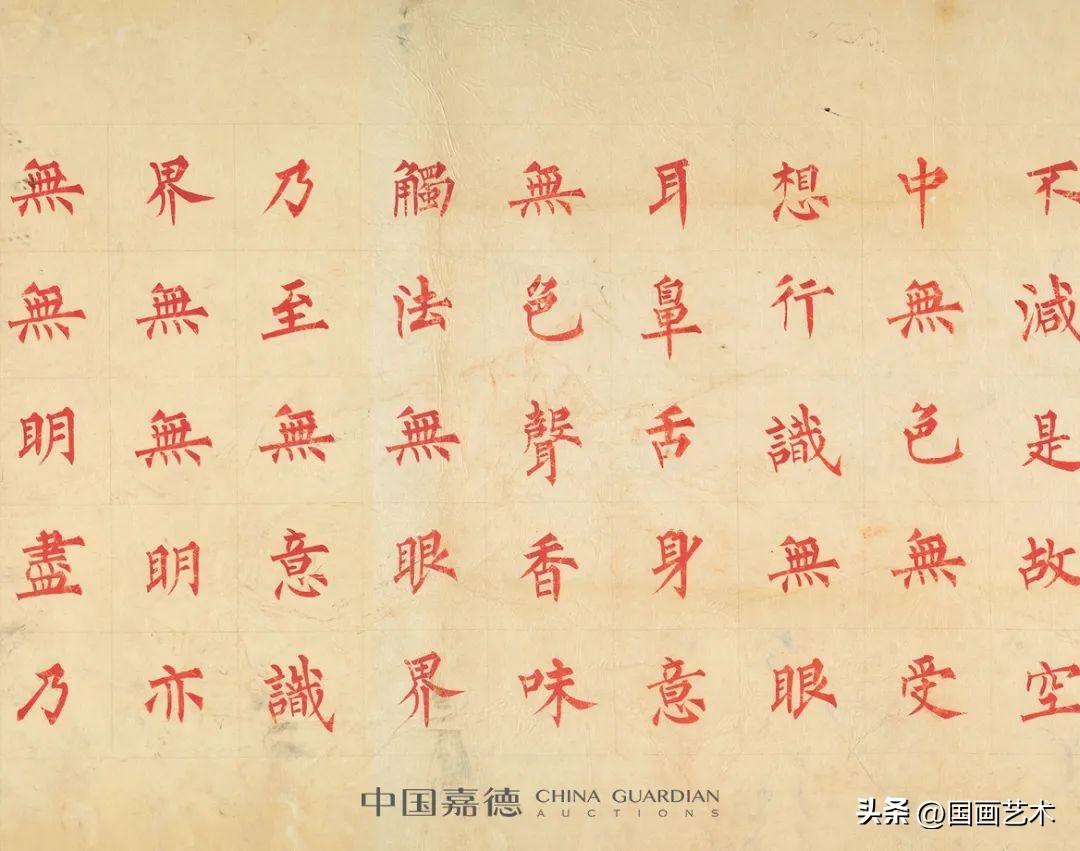 不減是故空
中無色無受
想行識無眼
耳鼻舌身意
無色聲香味
觸法無眼界
乃至無意識
界無無明亦
無無明盡乃
中国嘉德 CHINA GUARDIAN
AUCTIONS
头条 @国画艺术